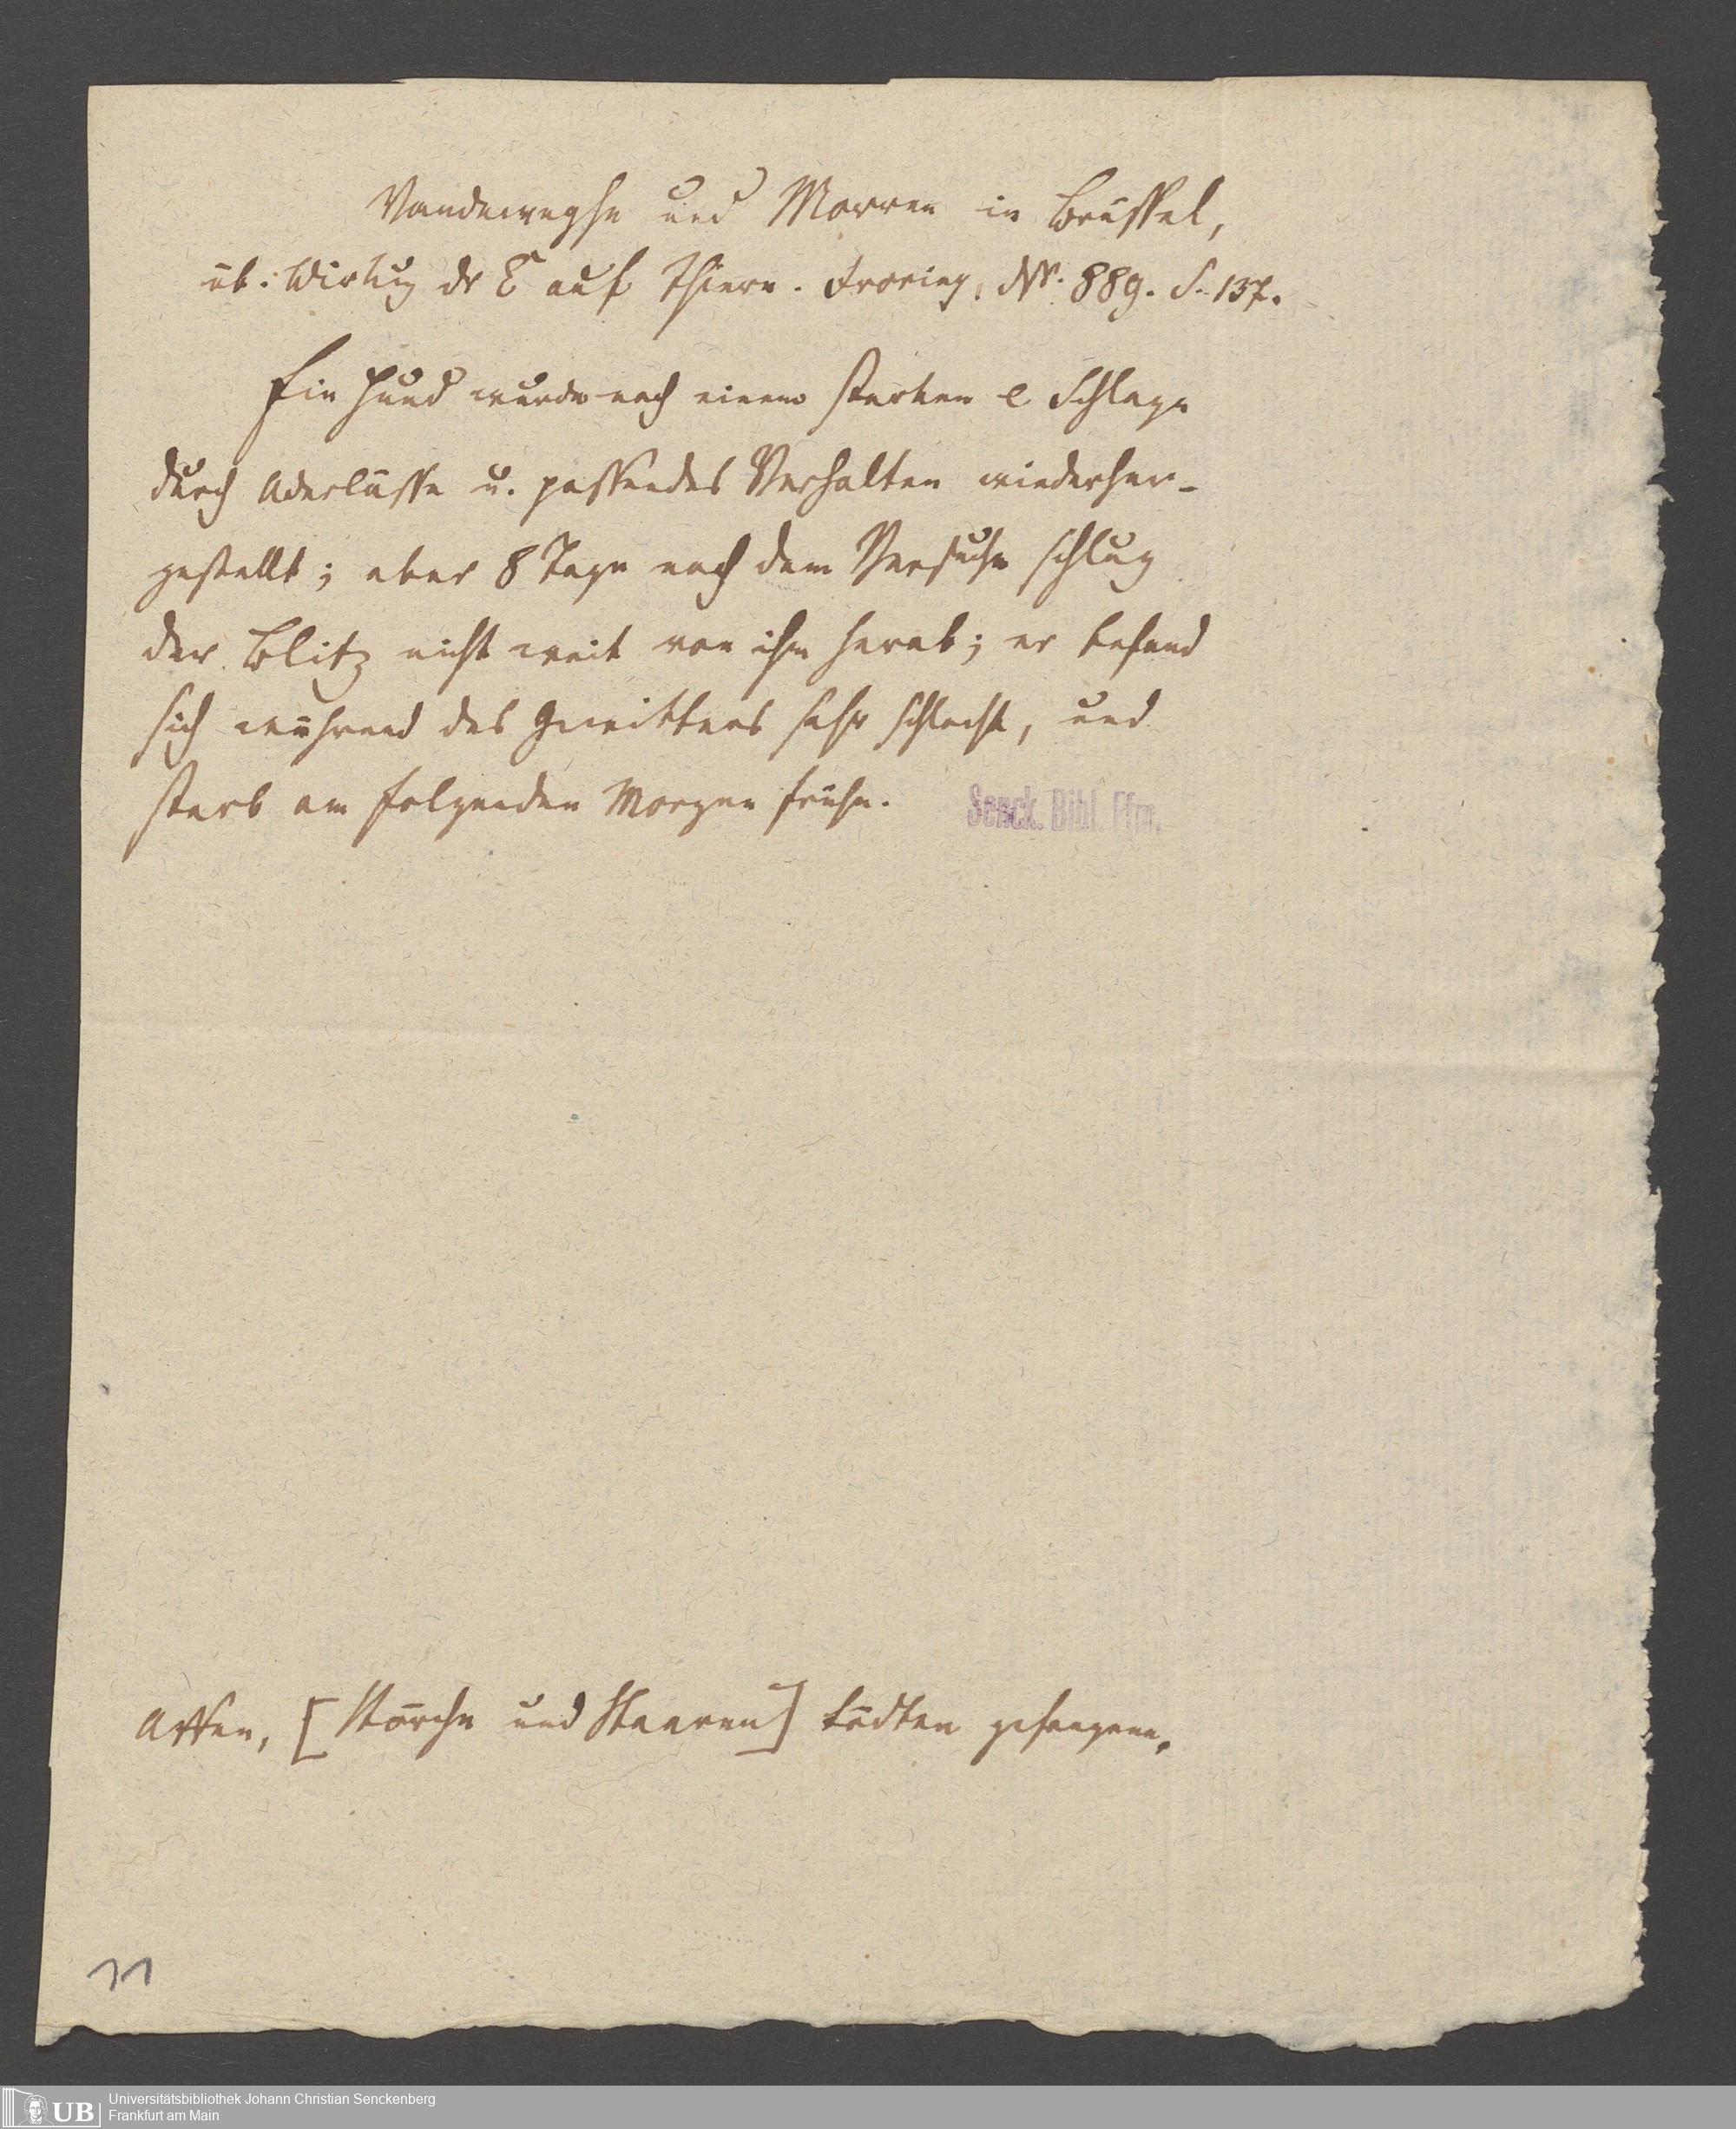 Vandeweghe und Morren in Brüssel,
üb: Wirkug dr E auf Thiere. Froriep, Nr. 889. S. 137.
Ein Hund wurde nach einem starken e Schlage
durch Aderlässe u. passendes Verhalten wiederher-
gestellt; aber 8 Tage nach dem Versuche schlug
der Blitz nicht weit von ihm herab; er befand
sich während des Gewitters sehr schlecht, und
starb am folgenden Morgen frühe.
Senck. Bibl. Ffm.
Affen, [Störche und Staaren] tödten gefangene.
11
UB
Universitätsbibliothek Johann Christian Senckenberg
Frankfurt am Main